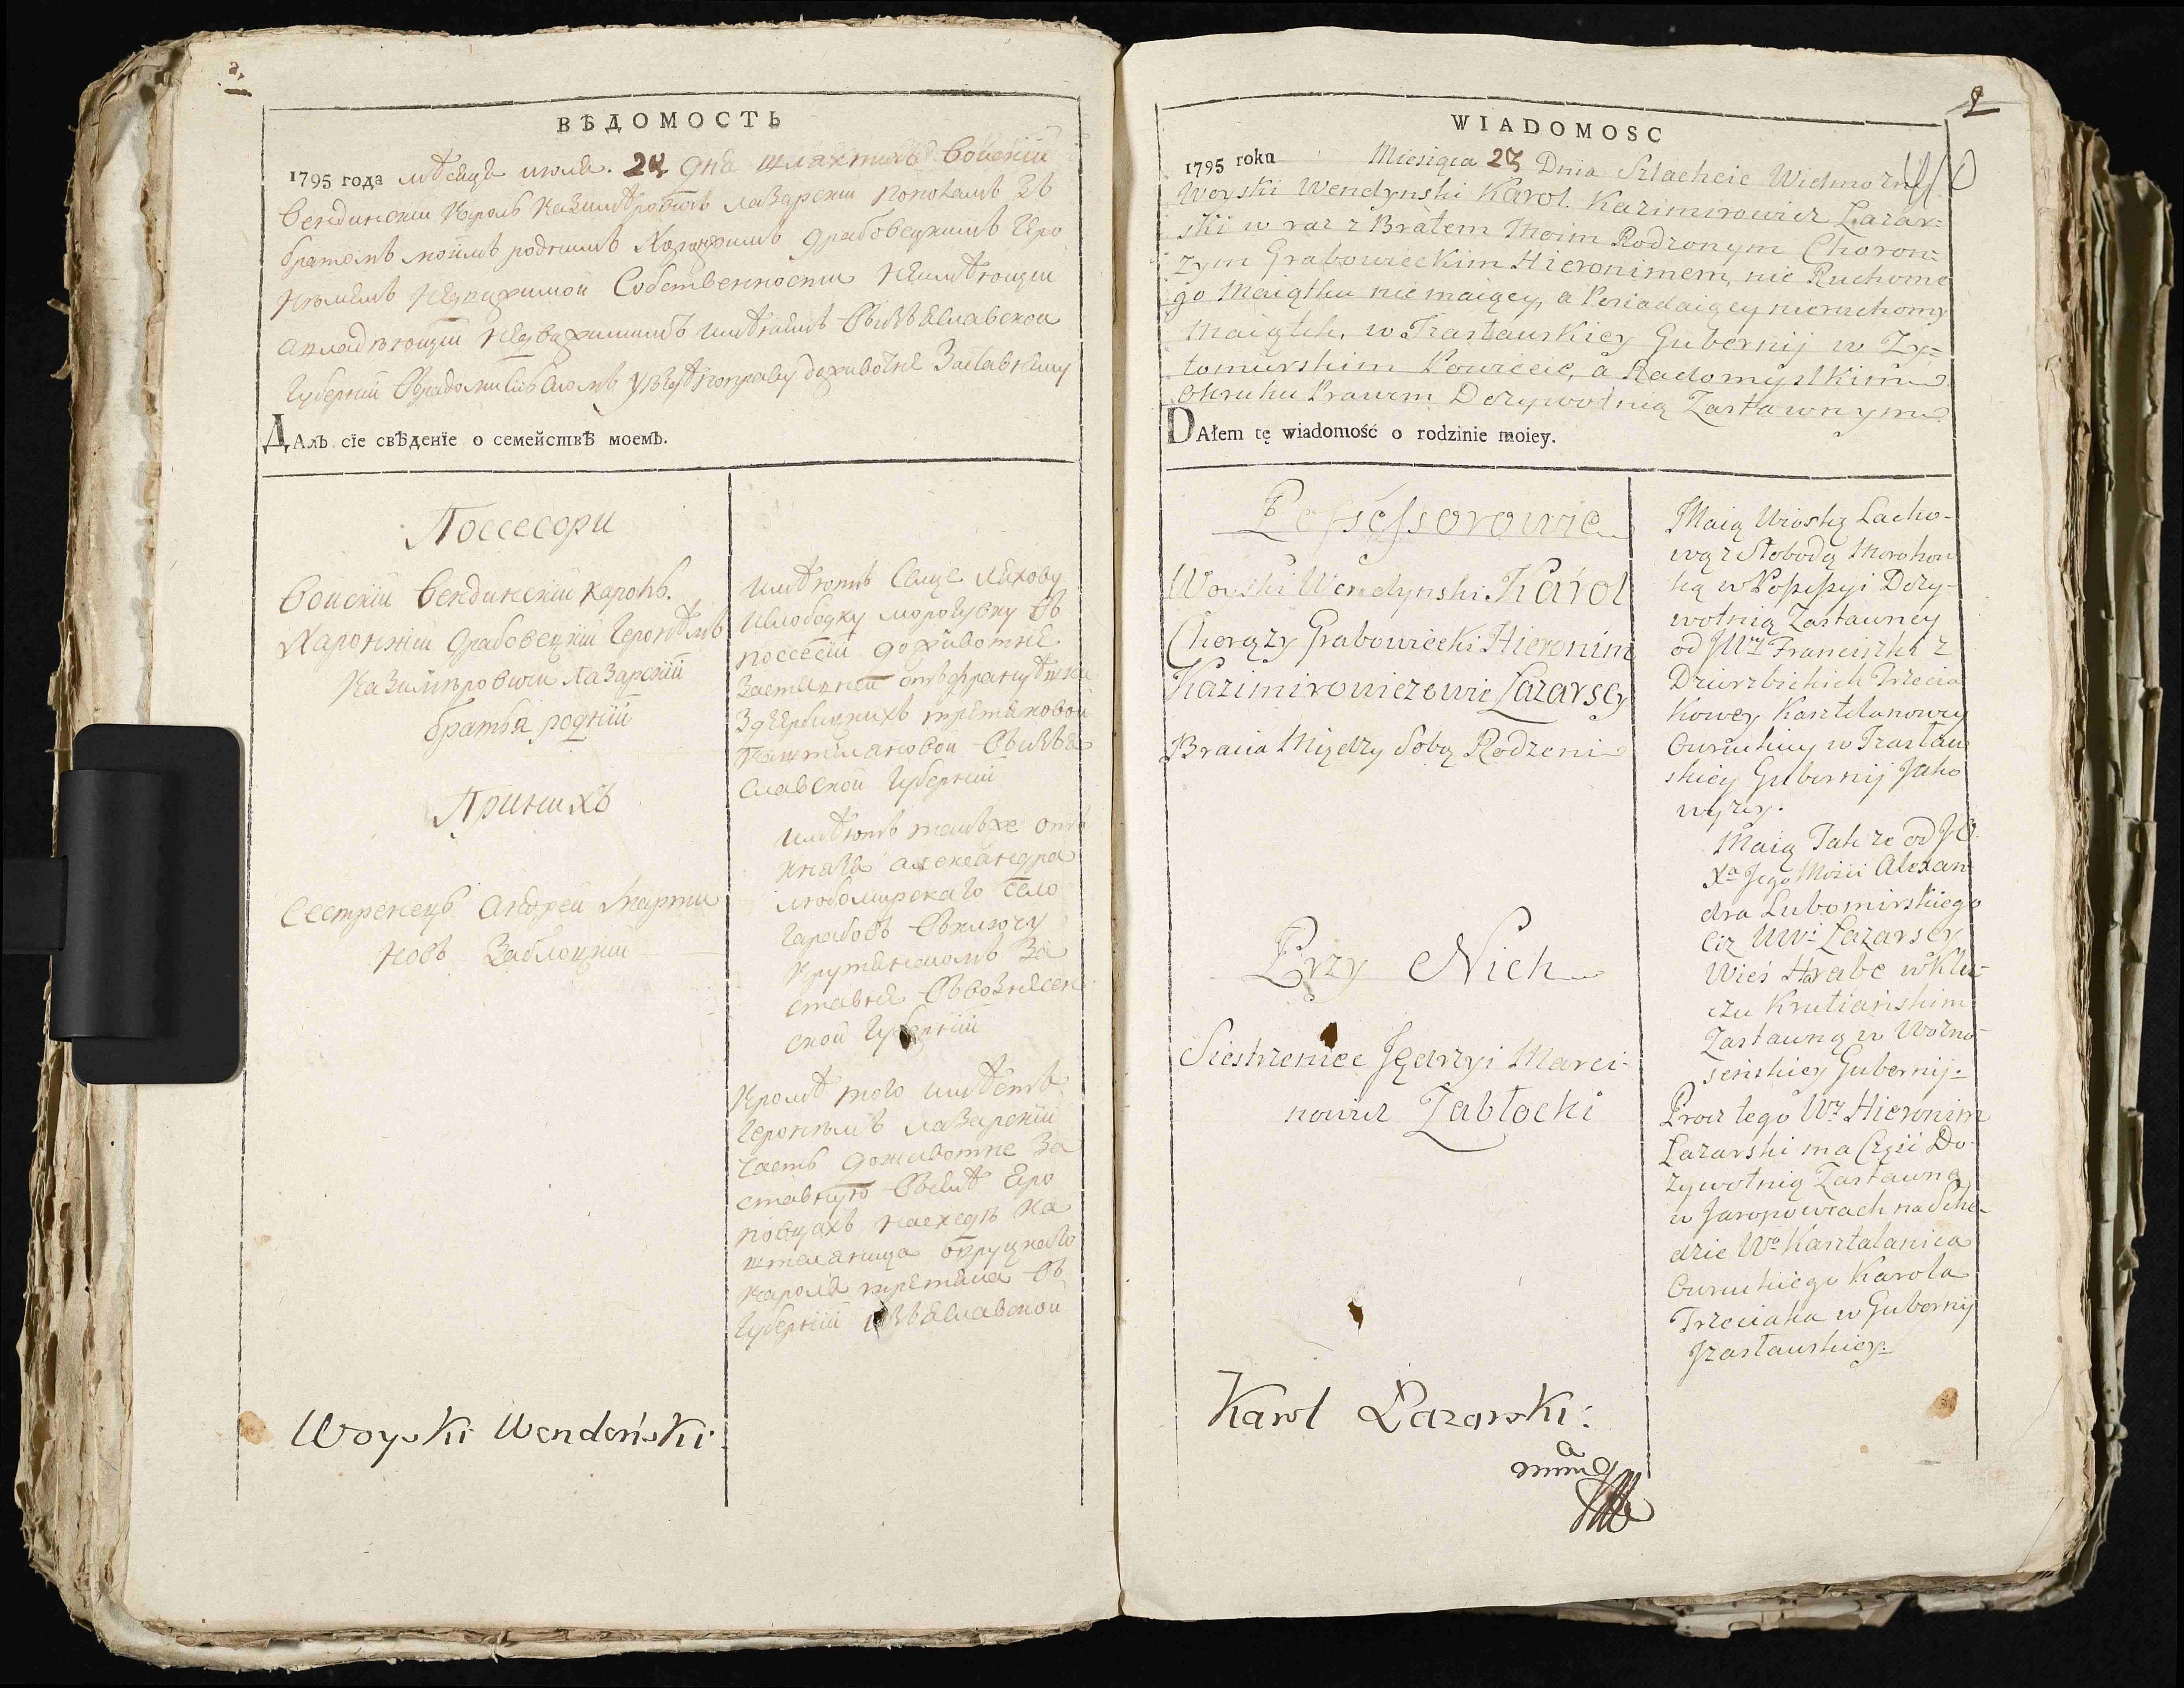 ВѢДОМОСТЬ
1795 года мѣсяца июля. 24 дня шляхтичь войский
вендинский Кароль Казимѣровичь Лазарский поποкалъ зъ
братомъ моимъ роднимъ Хоронжимъ Драбовецкимъ Геро
нымемъ недвижимой собственности неимѣющии
авладѣющии недвижимимъ имѣниемъ въ Изѣяславской
губернии
Далъ сїе свѣденїе о семействѣ моемъ.
Поссесори
Войский вендинский Кароль.
Харонжий Драбовецкий Геронѣмъ
Казимѣровичи Лазарский
братья родний
При нихъ
Сестренецъ Андрей Марти
новъ Заблоцкий
имѣютъ селце Ляхову
ислободку Морогувку въ
поссесии доживотне
заставней отъ Францѣшки
Здзержбицкихъ третяковой
каштеляновой въ Изѣя
славской губернии
имѣютъ такъже отъ
князя Александра
Любомирскаго село
Гарабовъ въ ключу
крутянскомъ за
ставне въ вознесен
ской губернии
Кромѣ того имѣетъ
Геронымъ Лазарский
часть доживотне за
ставную въ селѣ Яро
повцахъ насхедѣ ка
штелянища овруцкаго
кароля третяка въ
губернии Изѣяславской
Woyski Wendeński
2
WIADOMOSC
1795 roku Miesiąca 23 Dnia Szlachcic Wielmożny
Woyski Wendynski Karol Kazimirowicz Lazar-
ski w raz z Bratem Moim Rodzonym Choron-
żym Grabowieckim Hieronimem, nie Ruchome
go Maiątku nie maiący, a Posiadaiący nieruchomy
Maiątek, w Izasławskiey Gubernij w Zy-
tomirskim Powiecie, a Radomyslkim
Okruhu Prawem Dozywotnią Zastawnym
DAłem tę wiadomość o rodzinie moiey.
Possessorowie
Woyski Wendynski Karol
Chorąży Grabowiecki Hieronim
Kazimirowiczowie Lazarscy
Bracia Między Sobą Rodzeni
Przy Nich
Siestrzeniec Jędrzyi Marci-
nowicz Zabłocki
Maią Wioskę Lacho-
wą z Słobodą Morohow
ką w Possessyi Dozy-
wotnią Zastawney
od JWey Franciszki z
Dzierzbickich Trzecia
kowey Kasztelanowey
Owruckiey w Izasław
skiey Gubernij Jako
wyzey.
Maią Takze od JO.
Xa Jego Mości Alexan
dra Lubomirskiego
ciz UWi Lazarscy
Wieś Hrabe w Klu-
czu Krutiańskim
Zastawną w Wozne-
seńskiey Gubernij.
Procz tego Wy Hieronim
Lazarski ma Część Do-
zywotnią Zastawną
w Jaropowcach na Sche-
dzie Wo Kasztalanica
Owruckiego Karola
Trzeciaka w Gubernij
Izasławskiey.
Karol Łazarski: